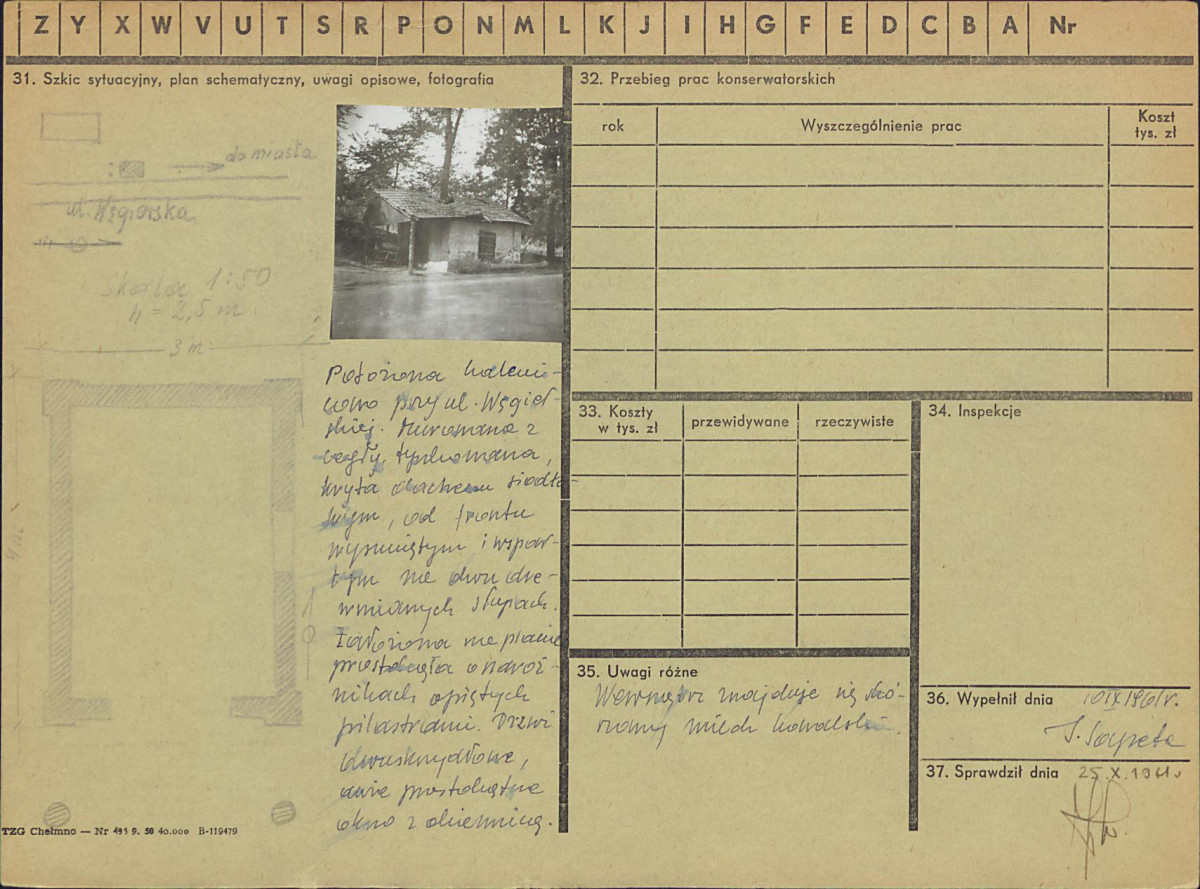 Z Y X W V U T S R P O N M L K J I H G F E D C B A Nr
31. Szkic sytuacyjny, plan schematyczny, uwagi opisowe, fotografia
do miasta
ul. Węgierska
Skala 1:50
h = 2,5 m
3 m
Położona
przy ul. Węgier-
skiej. Murowana z
cegły, tynkowana,
kryta dachem siodło-
wym, od frontu
wysuniętym i wspar-
tym na dwu dre-
wnianych słupach.
Założona na planie
prostokąta o naroż-
nikach opiętych
pilastrami. Drzwi
dwuskrzydłowe,
duże prostokątne
okno z okiennicą.
TZG Chełmno — Nr 495 9. 50 40.000 B-119479
32. Przebieg prac konserwatorskich
rok Wyszczególnienie prac Koszt
tys. zł
33. Koszty
w tys. zł przewidywane rzeczywiste
34. Inspekcje
35. Uwagi różne
Wewnątrz znajduje się skó-
rzany miech kowalski.
36. Wypełnił dnia 10 IX 1961 r.
37. Sprawdził dnia 25.X.1961.